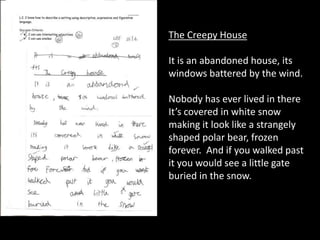 L.O. I know how to describe a setting using descriptive, expressive and figurative
language.
Success Criteria:
I can use interesting adjectives
I can use similes
The Creepy house
It is an abandond
house, its windows battered
by the wind.
Nobody has ever lived in there
its covered in white snow
making it look like a strangly
shaped polar bear, frozen
Forever. And if you
walked past it you would
see a little gate
buried in the snow
The Creepy House
It is an abandoned house, its
windows battered by the wind.
Nobody has ever lived in there
It's covered in white snow
making it look like a strangely
shaped polar bear, frozen
forever. And if you walked past
it you would see a little gate
buried in the snow.